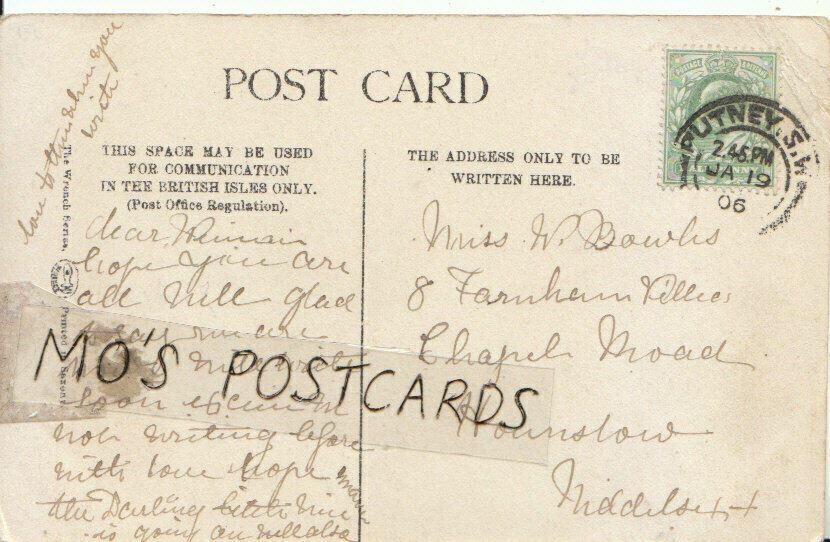 POST CARD
THIS SPACE MAY BE USED
FOR COMMUNICATION
IN THE BRITISH ISLES ONLY.
(Post Office Regulation).
THE ADDRESS ONLY TO BE
WRITTEN HERE.
PUTNEY. S.W
2.45 PM
JA 19
06
POSTAGE
The Wrench Series,
Printed
dear
hope you are
all well glad
to say we are
write
soon
not writing before
with love hope
the Darling little
is going on well also
love to
you
write
Miss W. Bowles
8 Farnham Villas
Chapel Road
Hounslow
Middelsex
MO'S POSTCARDS